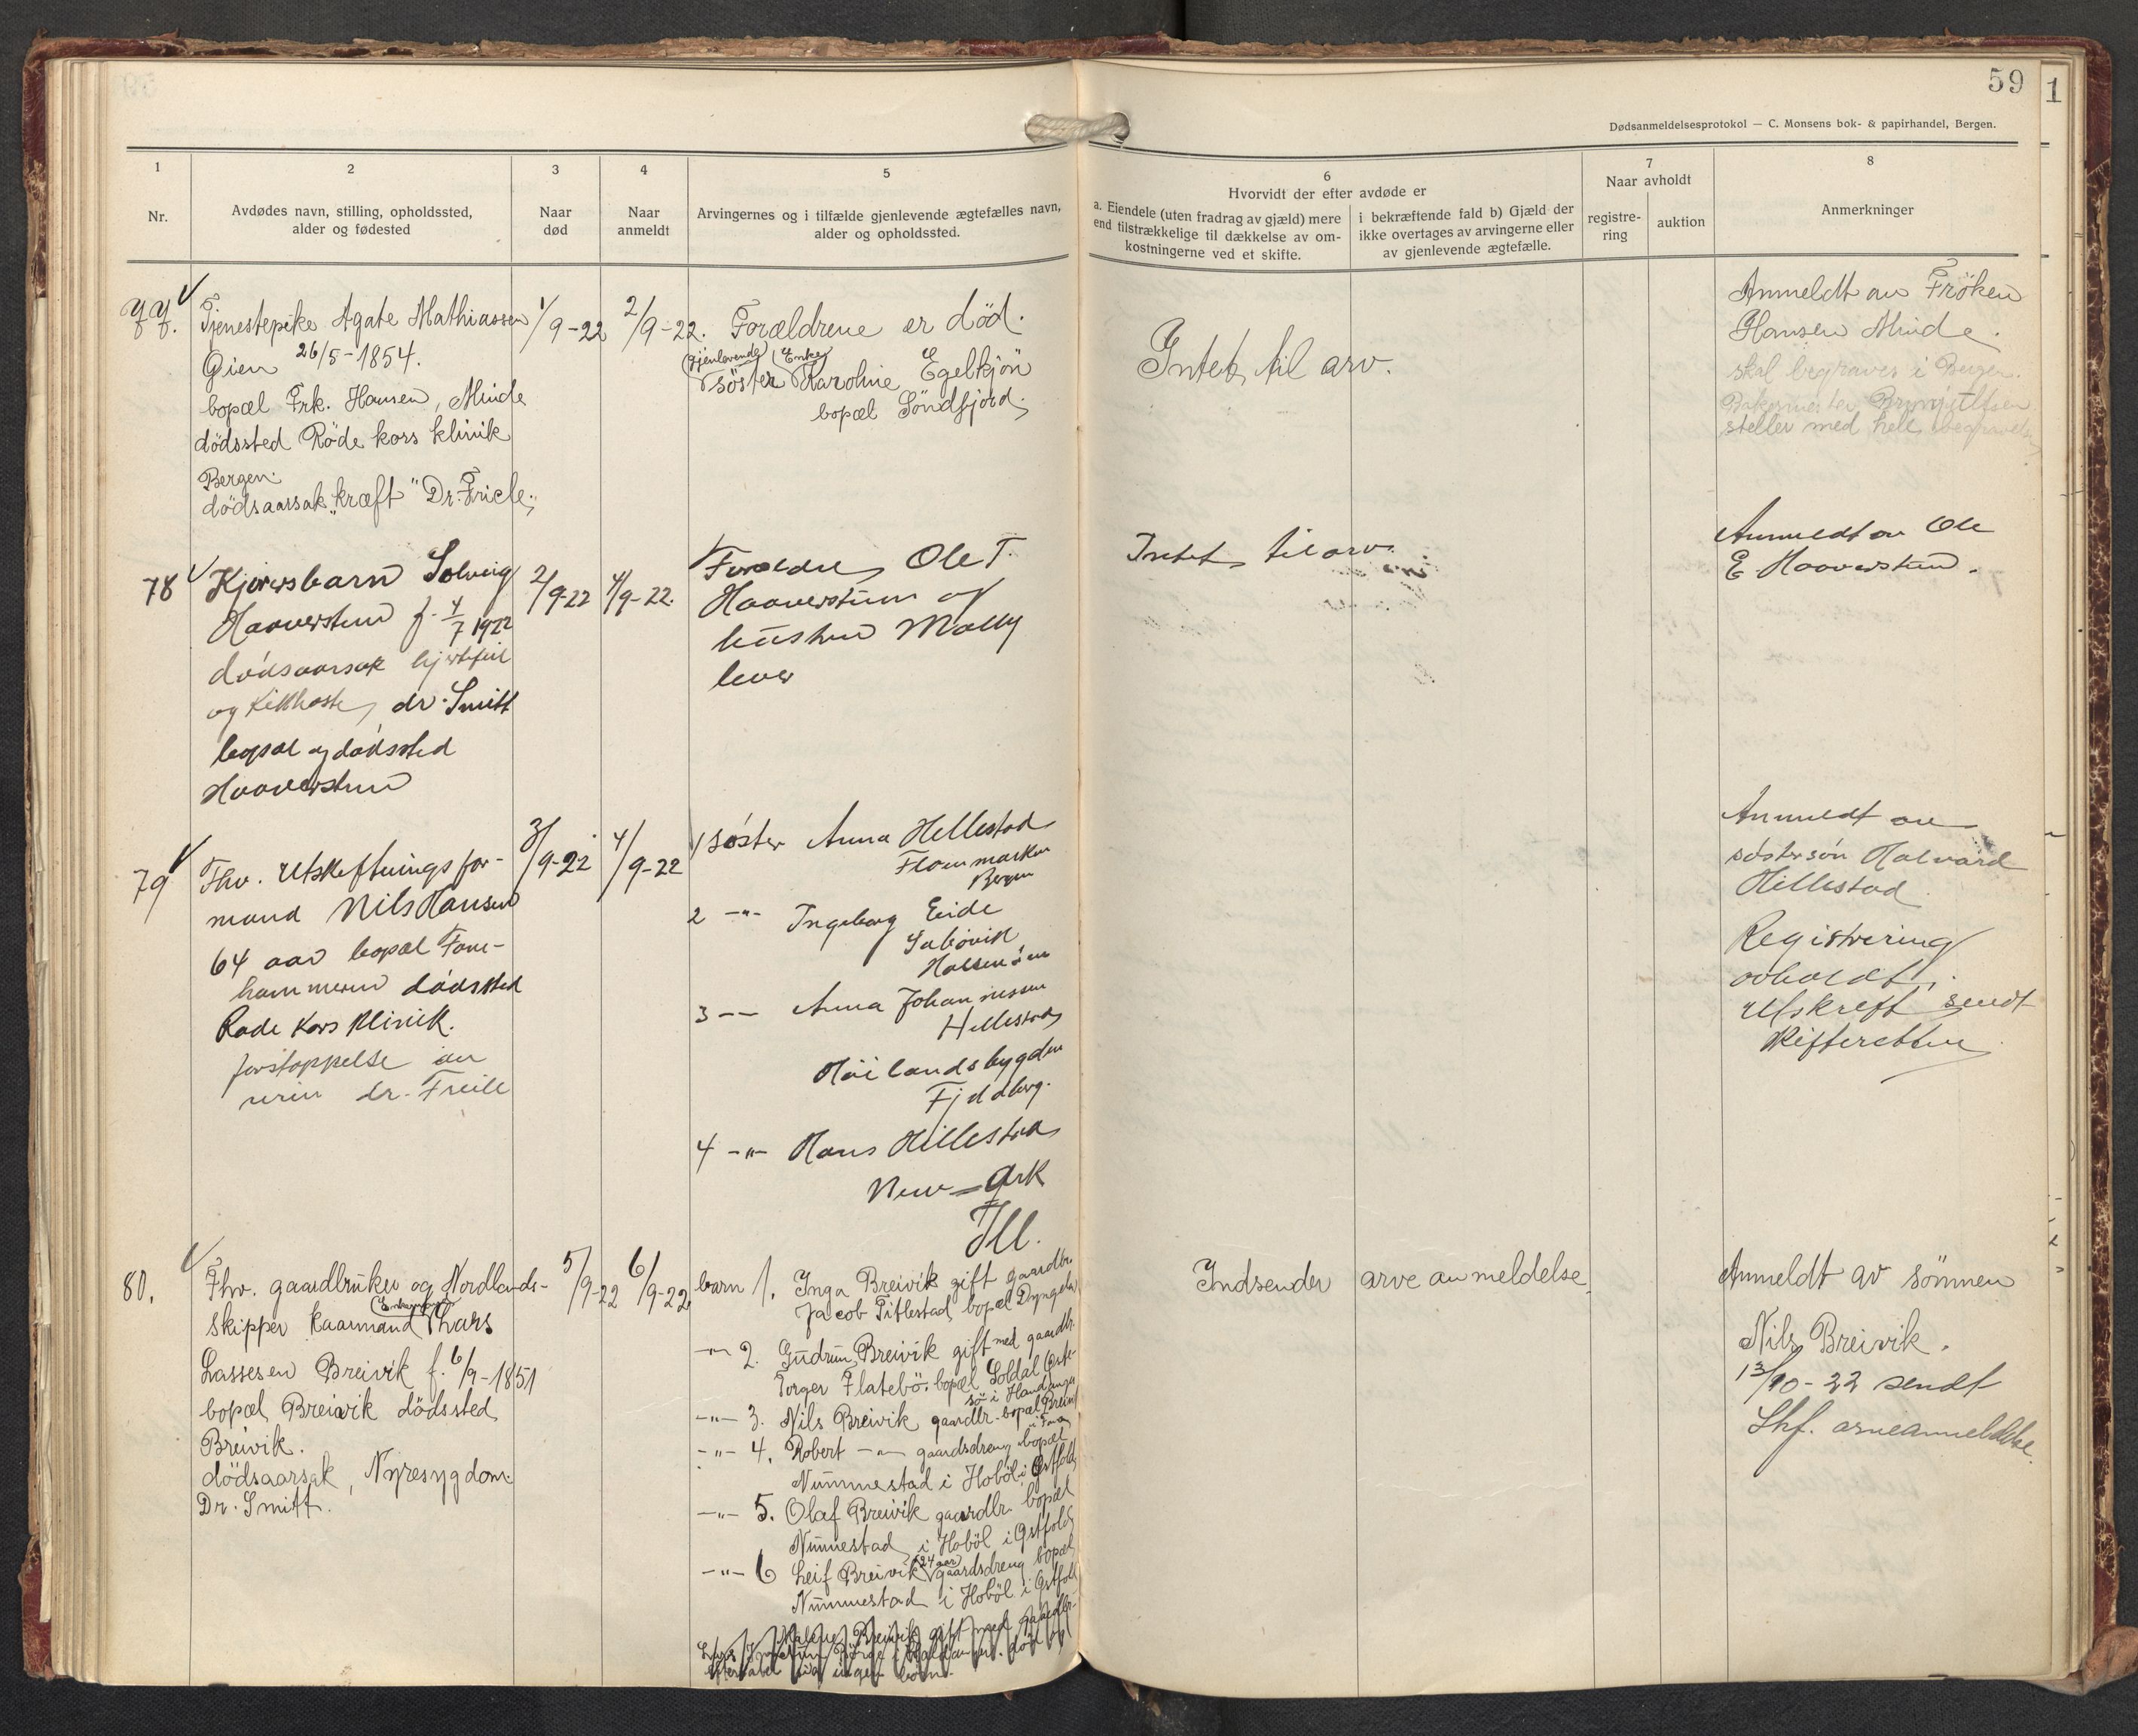 59
1
Dødsanmeldelsesprotokol — C. Monsens bok- & papirhandel, Bergen.
1
Nr.
2
Avdødes navn, stilling, opholdssted,
alder og fødested
3
Naar
død
4
Naar
anmeldt
5
Arvingernes og i tilfælde gjenlevende ægtefælles navn,
alder og opholdssted.
6
Hvorvidt der efter avdøde er
a. Eiendele (uten fradrag av gjæld) mere
end tilstrækkelige til dækkelse av om-
kostningerne ved et skifte.
i bekræftende fald b) Gjæld der
ikke overtages av arvingerne eller
av gjenlevende ægtefælle.
7
Naar avholdt
registre-
ring
auktion
8
Anmerkninger
77.
Tjenestepike Agate Mathiassen
Øien 26/5-1854.
bopæl Frk. Hansen, Minde
dödssted Röde kors klinik
Bergen.
dödsaarsak "kræft" Dr.
1/9-22
2/9-22.
Forældrene er död.
(gjenlevende) (Enke)
söster Karoline Egelkjön
bopæl Söndfjord.
Intet til arv.
Anmeldt av Fröken
Hansen Minde.
skal begraves i Bergen.
steller med hele begravels
78
Solveig
Haaverstun f. 4/7 1922
dödsaarsak hjertefeil
og Kikhoste, dr. Smitt
bopæl og dödssted
Haaverstun
2/9-22
4/9-22.
Foreldre Ole T.
Haaverstun og
hustru Molly
lever
Intet til arv.
Anmeldt av Ole
E. Haaverstun.
79
Fhv. Utskiftningsfor-
mand Nils Hansen
64 aar bopæl Fane-
hammeren dödssted
Röde Kors Klinik.
forstoppelse av
urin dr.
3/9-22
4/9-22
1 söster Anna Hellestad
Bergen
2 -"- Ingeborg Eide
3 -- Anna Johannessen
Hellestad
Fjeldberg.
4 -"- Hans Hillestad
New-York
Ill.
Anmeldt av
söstersön Halvard
Hillestad
Registrering
avholdt.
Utskrift sendt
skifteretten
80.
Fhv. gaardbruker og Nordlands-
skipper (Enkemand) Lars
Lassesen Breivik f. 6/9-1851
bopæl Breivik dödssted
Breivik.
dödsaarsak, Nyresygdom
Dr. Smitt.
5/9-22
6/9-22
barn 1. Inga Breivik gift gaardbr.
Jacob Titlestad bopæl Dyngeland
-"- 2. Gudrun Breivik gift med gaardbr.
Torger Flatebö. bopæl Soldal Öste-
sö i Hardanger
-"- 3. Nils Breivik gaardbr. bopæl Breivik
i Fana
-"- 4. Robert -"- gaardsdreng bopæl
Nummestad i Hoböl i Östfold
-"- 5. Olaf Breivik gaardbr. bopæl
Nummestad i Hoböl i Östfold
-"- 6 Leif Breivik (24 aar) gaardsdreng bopæl
Nummestad i Hoböl i Östfold
Indsender arveanmeldelse
Anmeldt av sönnen
Nils Breivik.
13/10-22 sendt
Shf. arveanmeldelse.